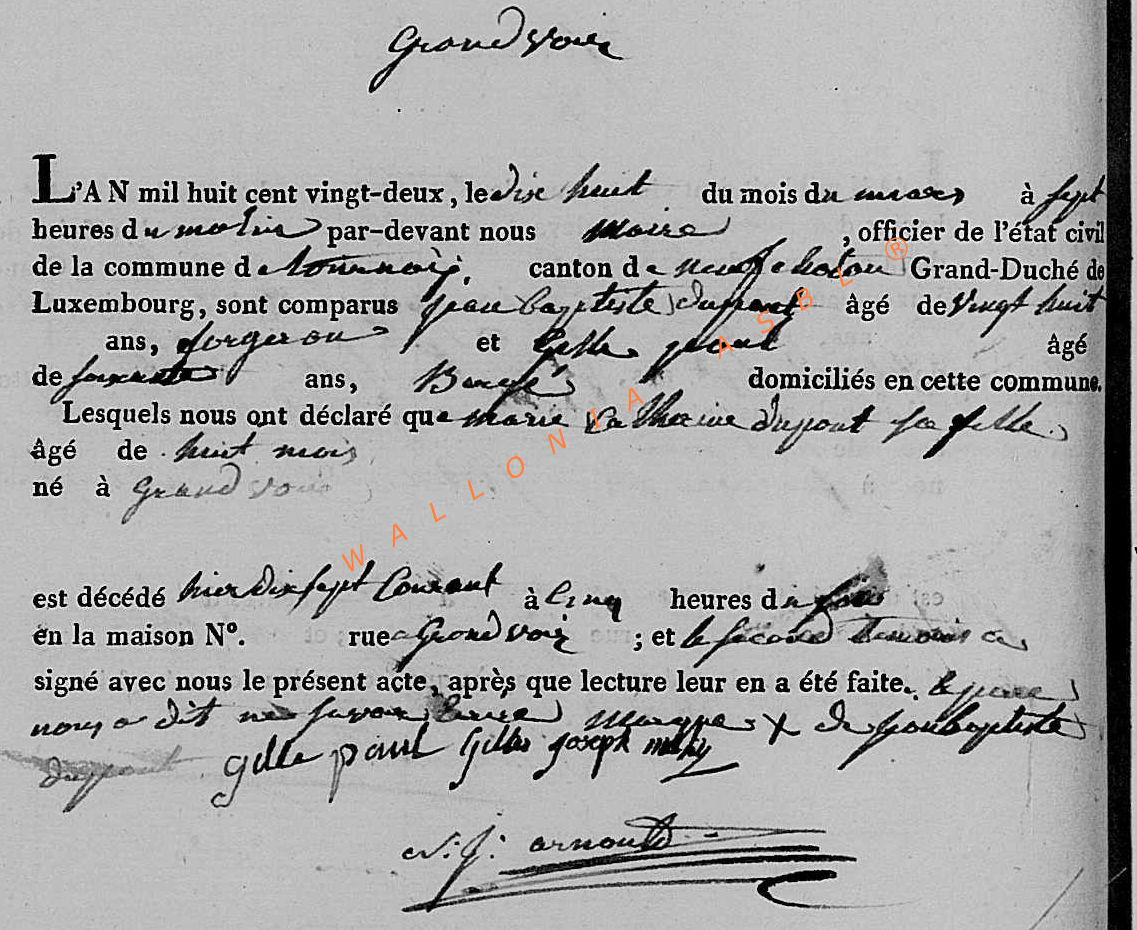 Grandvoir
L'AN mil huit cent vingt-deux, le dix huit du mois du mars à sept
heures du matin par-devant nous maire , officier de l'état civil
de la commune de tournay, canton de neufchateau Grand-Duché de
Luxembourg, sont comparus jean baptiste dupont âgé de vingt huit
ans, forgeron et Gille paul âgé
de soixante ans, domiciliés en cette commune.
Lesquels nous ont déclaré que marie Catherine dupont sa fille
âgé de huit mois
né à Grandvoir
est décédé hier dix sept Courant à cinq heures du soir
en la maison N°. rue a Grandvoir ; et le second temoin a
signé avec nous le présent acte, après que lecture leur en a été faite. le pere
nous a dit ne savoir marque x de jeanbaptiste
dupont gille paul Gilles joseph
N. J. arnould
WALLONIA ASBL ®